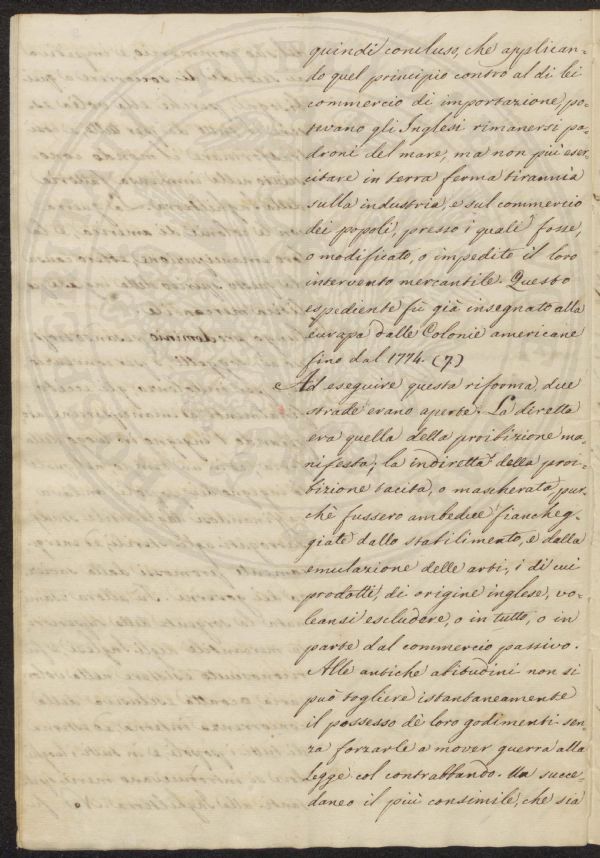 quindi concluso, che applican-
do quel principio contro al di lei
commercio di importazione, po-
tevano gli Inglesi rimanersi pa-
droni del mare, ma non più eser-
citare in terra ferma tirannia
sulla industria, e sul commercio
dei popoli, presso i quali fosse,
o modificato, o impedito il loro
intervento mercantile. Questo
espediente fù già insegnato alla
europa dalle Colonie americane
fino dal 1774. (7)
Ad eseguire questa riforma due
strade erano aperte. La diretta
era quella della proibizione ma-
nifesta; la indiretta della proi-
bizione tacita, o mascherata pur-
chè fussero ambedue fiancheg-
giate dallo stabilimento, e dalla
emulazione delle arti, i di cui
prodotti, di origine inglese, vo-
leansi escludere, o in tutto, o in
parte dal commercio passivo.
Alle antiche abitudini non si
può togliere istantaneamente
il possesso dè loro godimenti sen-
za forzarle a mover guerra alla
Legge col contrabbando. Un succe-
daneo il più consimile, che sia